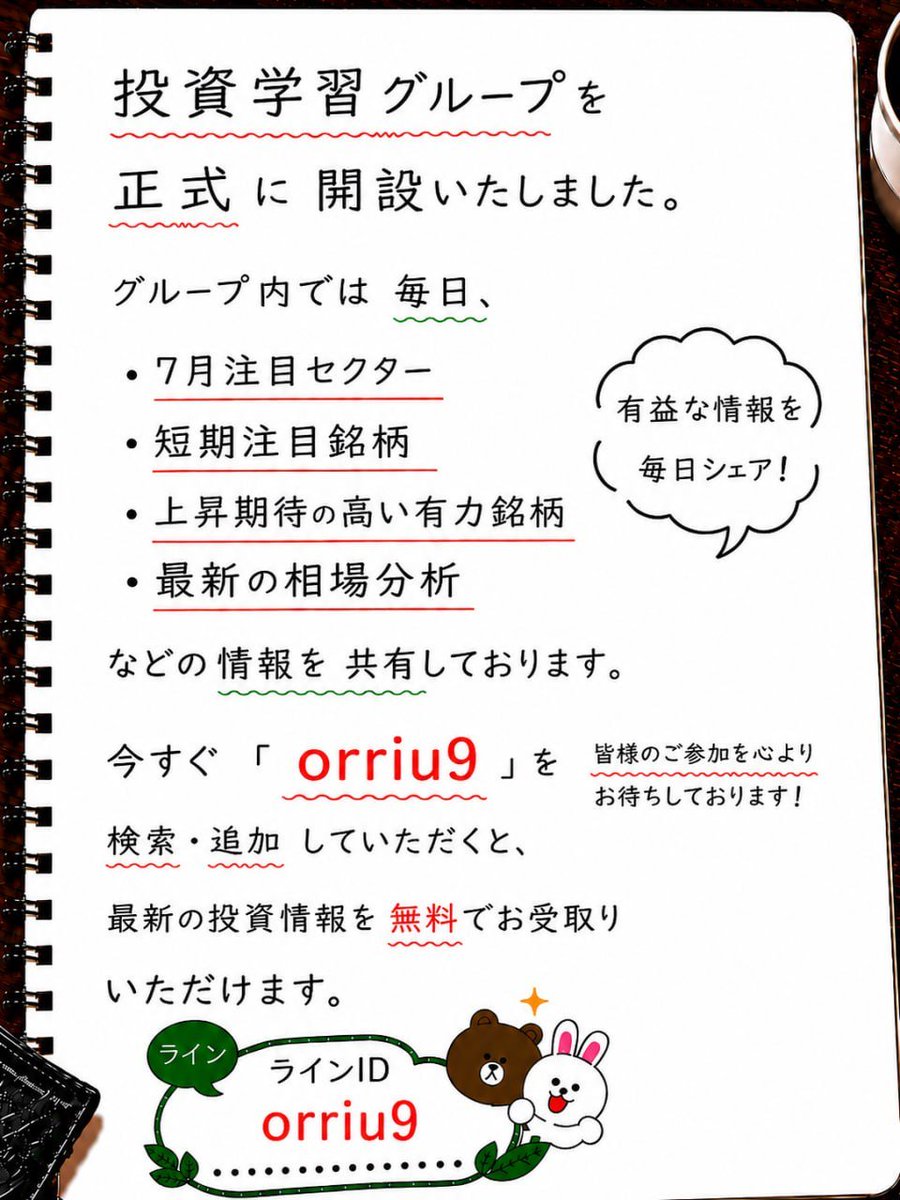 投資学習グループを
正式に開設いたしました。
グループ内では毎日、
・7月注目セクター
・短期注目銘柄
・上昇期待の高い有力銘柄
・最新の相場分析
有益な情報を
毎日シェア!
などの情報を共有しております。
今すぐ「orriu9」を
検索・追加していただくと、
最新の投資情報を無料でお受取り
いただけます。
皆様のご参加を心より
お待ちしております!
ライン
ラインID
orriu9